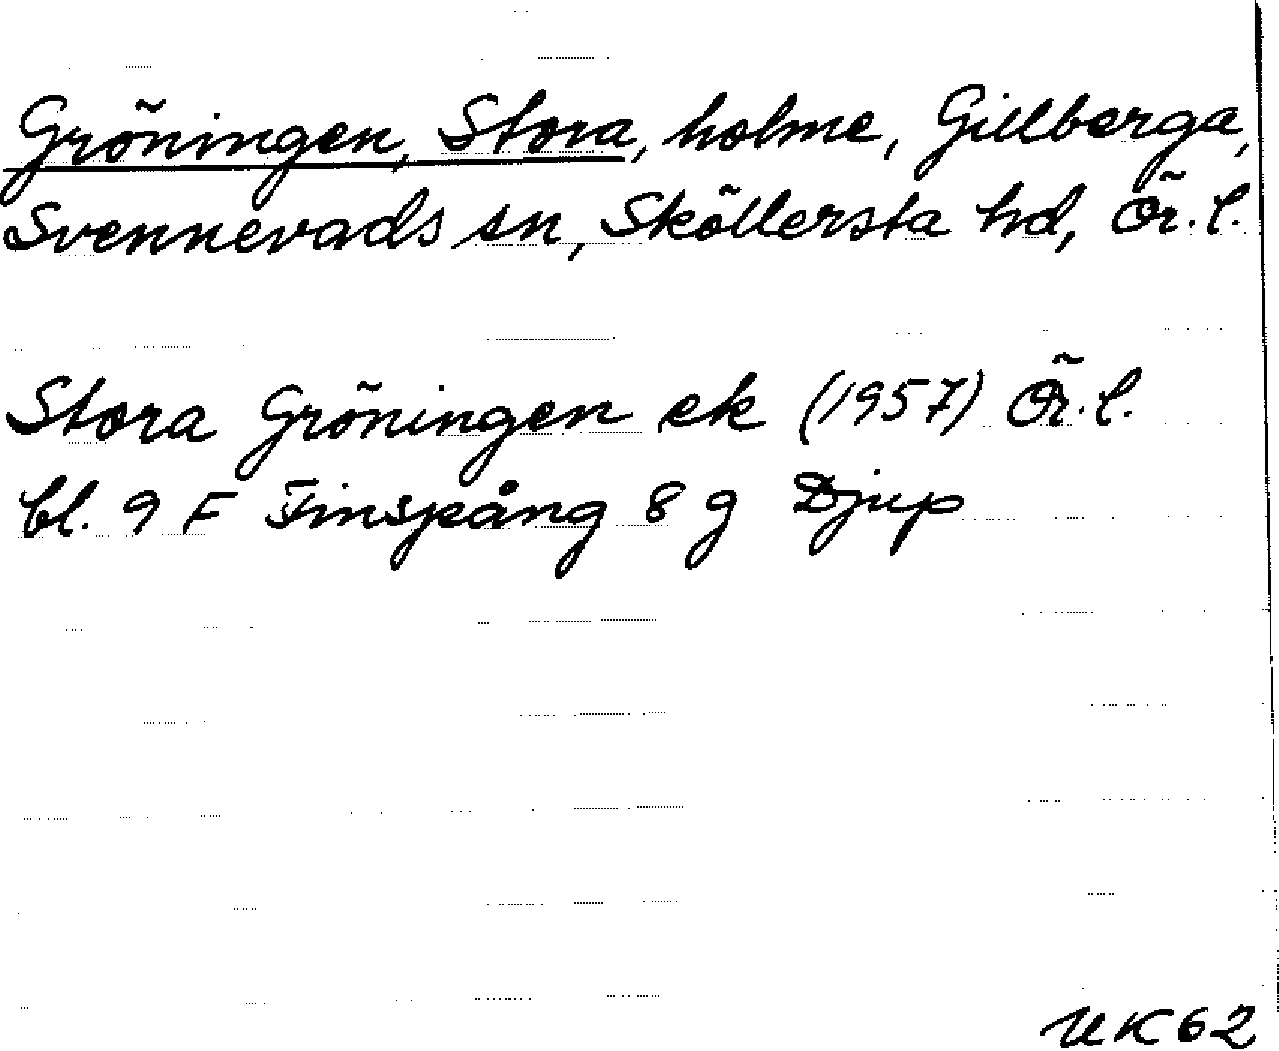 Gröningen, Stora, holme, Gillberga,
Svennevads sn, Sköllersta hd, Ör.l.
Stora Gröningen ek (1957) Ör.l.
bl. 9 F Finspång 8 g Djup
UK62